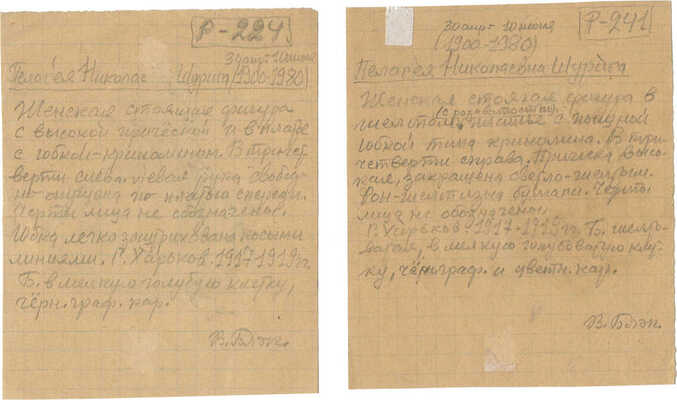 Р-224
30 апр - 10 июня
Пелагея Николае Шурига (1900-1980)
Женская стоящая фигура
с высокой прической и в платье
с юбкой-кринолином. В три чет
верти слева. Левая рука свобод
но опущена по платью спереди.
Черты лица не обозначены.
Юбка легко заштрихована косыми
линиями. Г. Харьков. 1917-1919 гг.
Б. в мелкую голубую клетку,
чёрн. граф. кар.
В. Блэк.
Р-241
30 апр - 10 июня
(1900-1980)
Пелагея Николаевна Шурига
Женская стоящая фигура в
(с розоватостью)
желтом платье с пышной
юбкой типа кринолина. В три
четверти справа. Прическа высо
кая, закрашена светло-желтым.
Фон-желтизна бумаги. Черты
лица не обозначены.
Г. Харьков. 1917-1919 гг. Б. желто-
ватая, в мелкую голубоватую клет
ку, чёрн. граф. и цветн. кар.
В. Блэк.